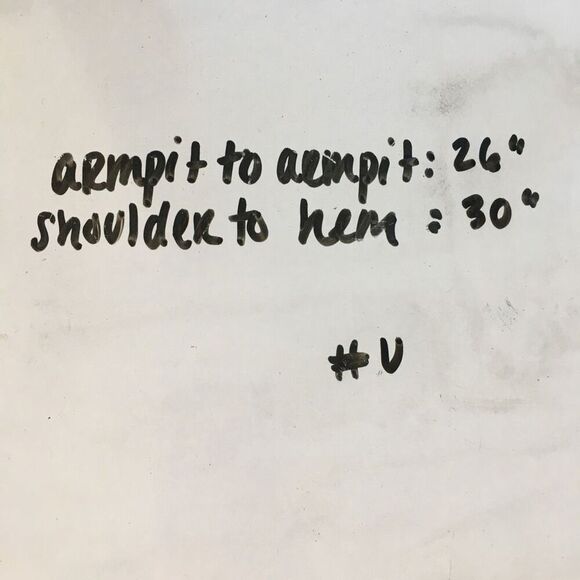 armpit to armpit: 26"
shoulder to hem : 30"
#U